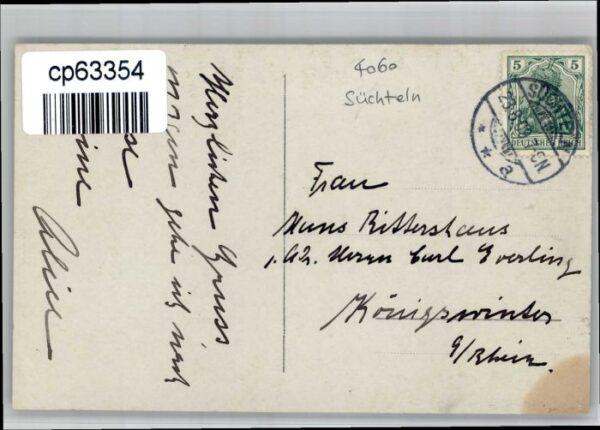 cp63354
4060
Süchteln
5 5
DEUTSCHES REICH
SÜCHTELN
Frau
Hans Rittershaus
i. Adr. Herrn Carl Everling
Königswinter
a/Rhein.
Herzlichen Gruss
morgen gehe ich nach